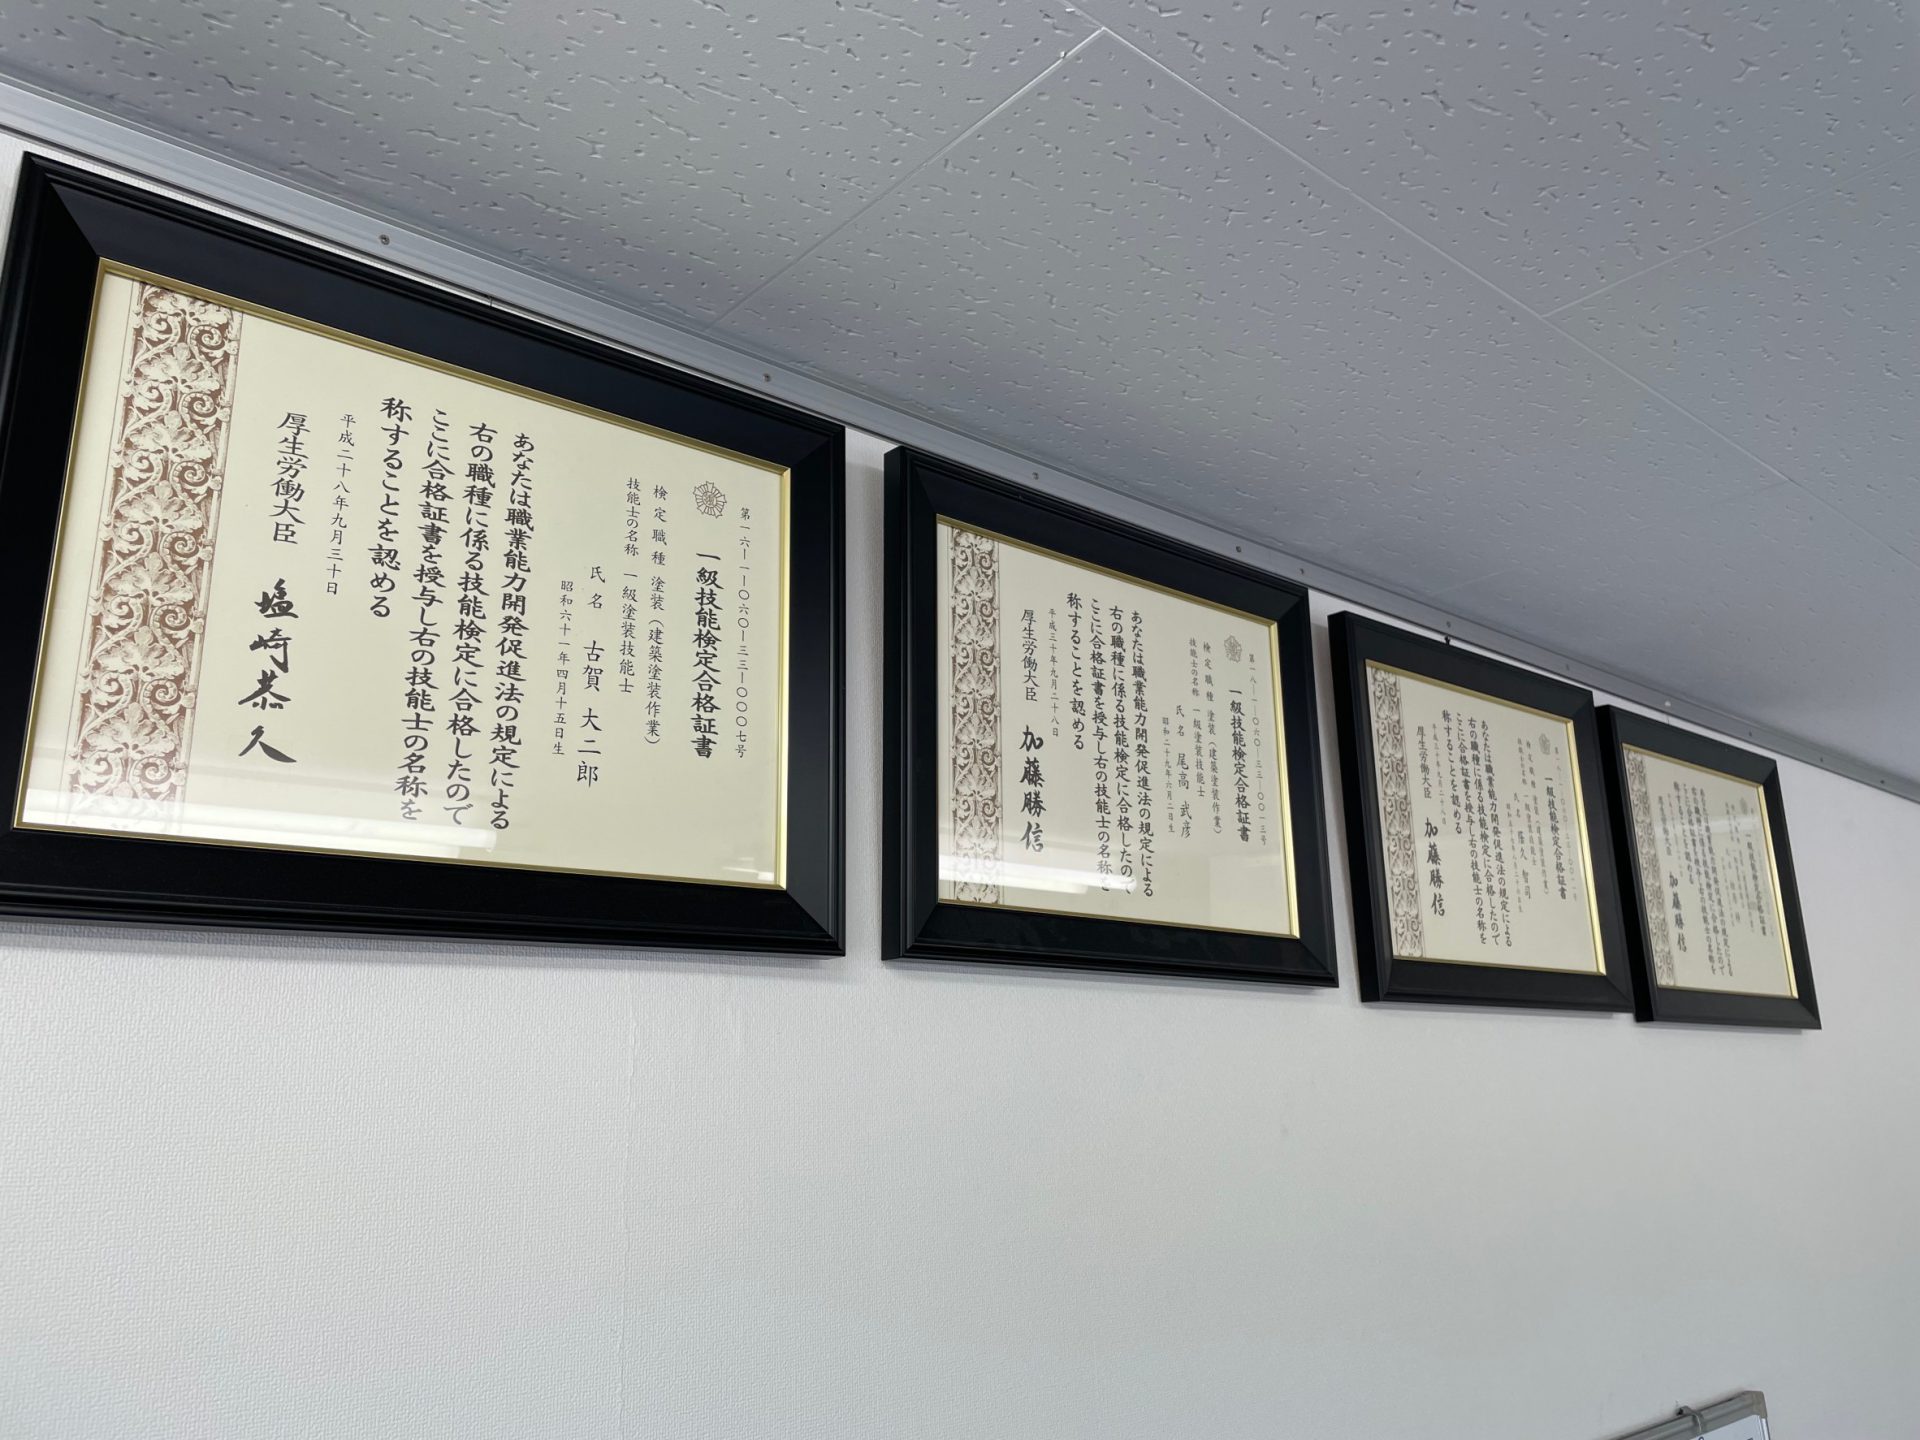 第一六―一―〇六〇―三三―〇〇〇七号
一級技能検定合格証書
検定職種 塗装（建築塗装作業）
技能士の名称 一級塗装技能士
氏名 古賀 大二郎
昭和六十一年四月十五日生
あなたは職業能力開発促進法の規定による
右の職種に係る技能検定に合格したので
ここに合格証書を授与し右の技能士の名称を
称することを認める
平成二十八年九月三十日
厚生労働大臣 塩崎恭久
第一八―一―〇六〇―三三―〇〇一三号
一級技能検定合格証書
検定職種 塗装（建築塗装作業）
技能士の名称 一級塗装技能士
氏名 尾高 武彦
昭和二十九年六月二日生
あなたは職業能力開発促進法の規定による
右の職種に係る技能検定に合格したので
ここに合格証書を授与し右の技能士の名称を
称することを認める
平成三十年九月二十八日
厚生労働大臣 加藤勝信
一級技能検定合格証書
検定職種 塗装（建築塗装作業）
技能士の名称 一級塗装技能士
氏名
あなたは職業能力開発促進法の規定による
右の職種に係る技能検定に合格したので
ここに合格証書を授与し右の技能士の名称を
称することを認める
平成三十年九月二十八日
厚生労働大臣 加藤勝信
一級技能検定合格証書
あなたは職業能力開発促進法の規定による
右の職種に係る技能検定に合格したので
ここに合格証書を授与し右の技能士の名称を
称することを認める
厚生労働大臣 加藤勝信